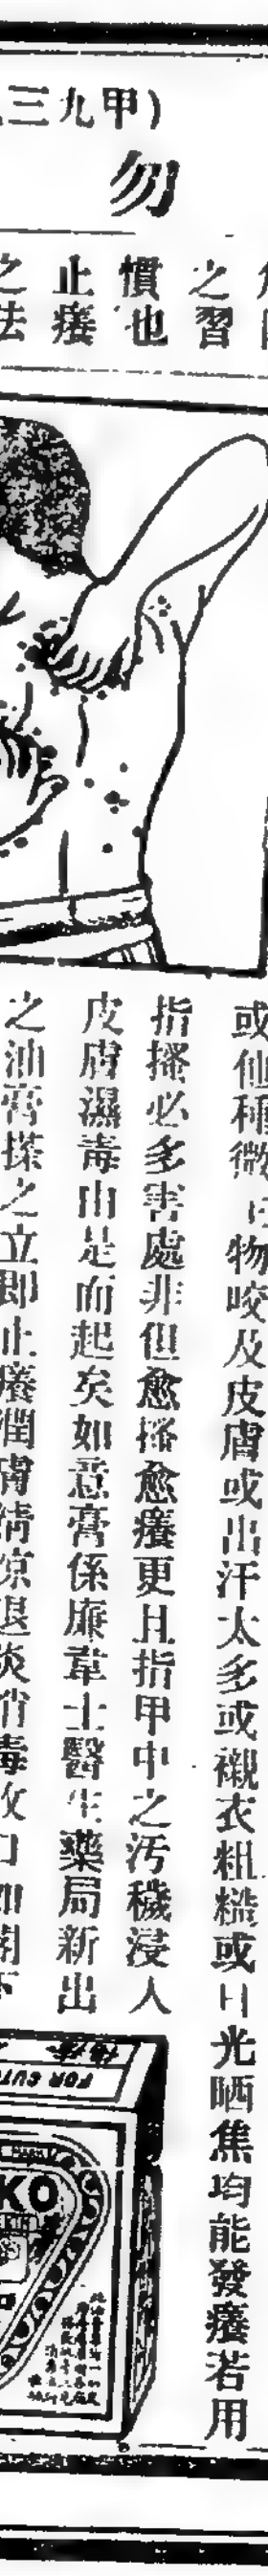 三九甲)
勿
之習
慣也
止癢
之法
或他種微生物咬及皮膚或出汗太多或襯衣粗糙或日光晒焦均能發癢若用
指搔必多害處非但愈搔愈癢更且指甲中之汚穢浸入
皮膚濕毒由是而起矣如意膏係廉韋士醫生藥局新出
之油膏搽之立即止癢潤膚清凉退炎消毒收口如閣下
FOR CUT
KO